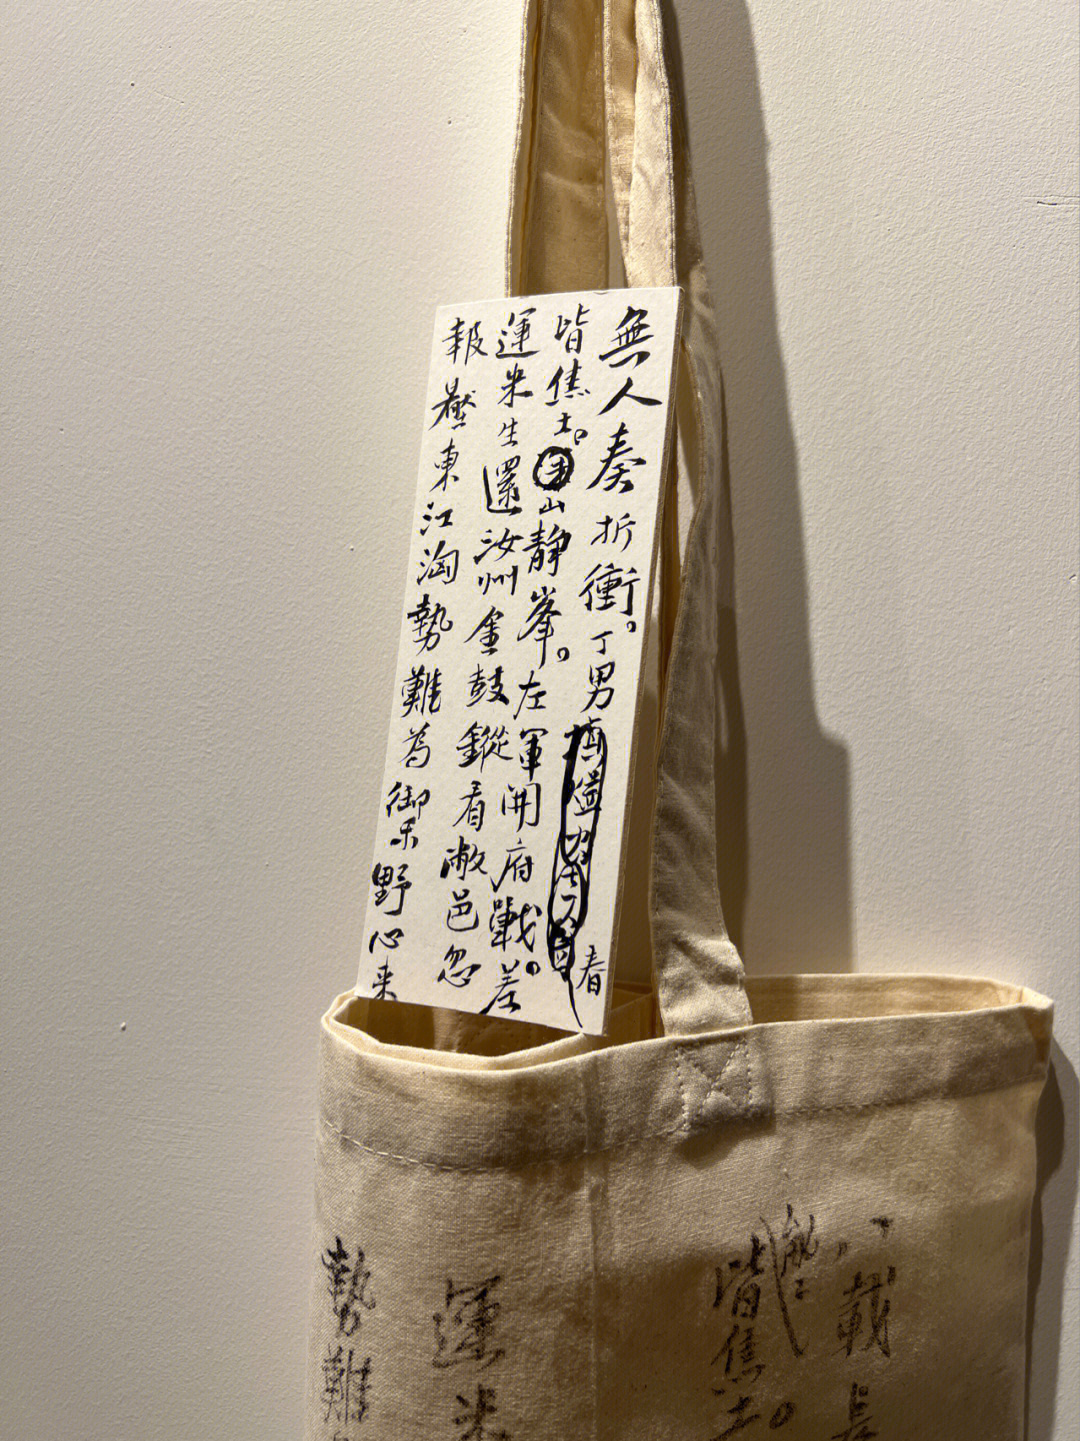 無人奏折衝。丁男填
春
皆焦土。山靜峯。左軍開府戰。差
運米生還汝州金鼓鏦看敝邑忽
報壓東江淘勢難為御平野心来
八載長
皆焦土。
運米
勢難